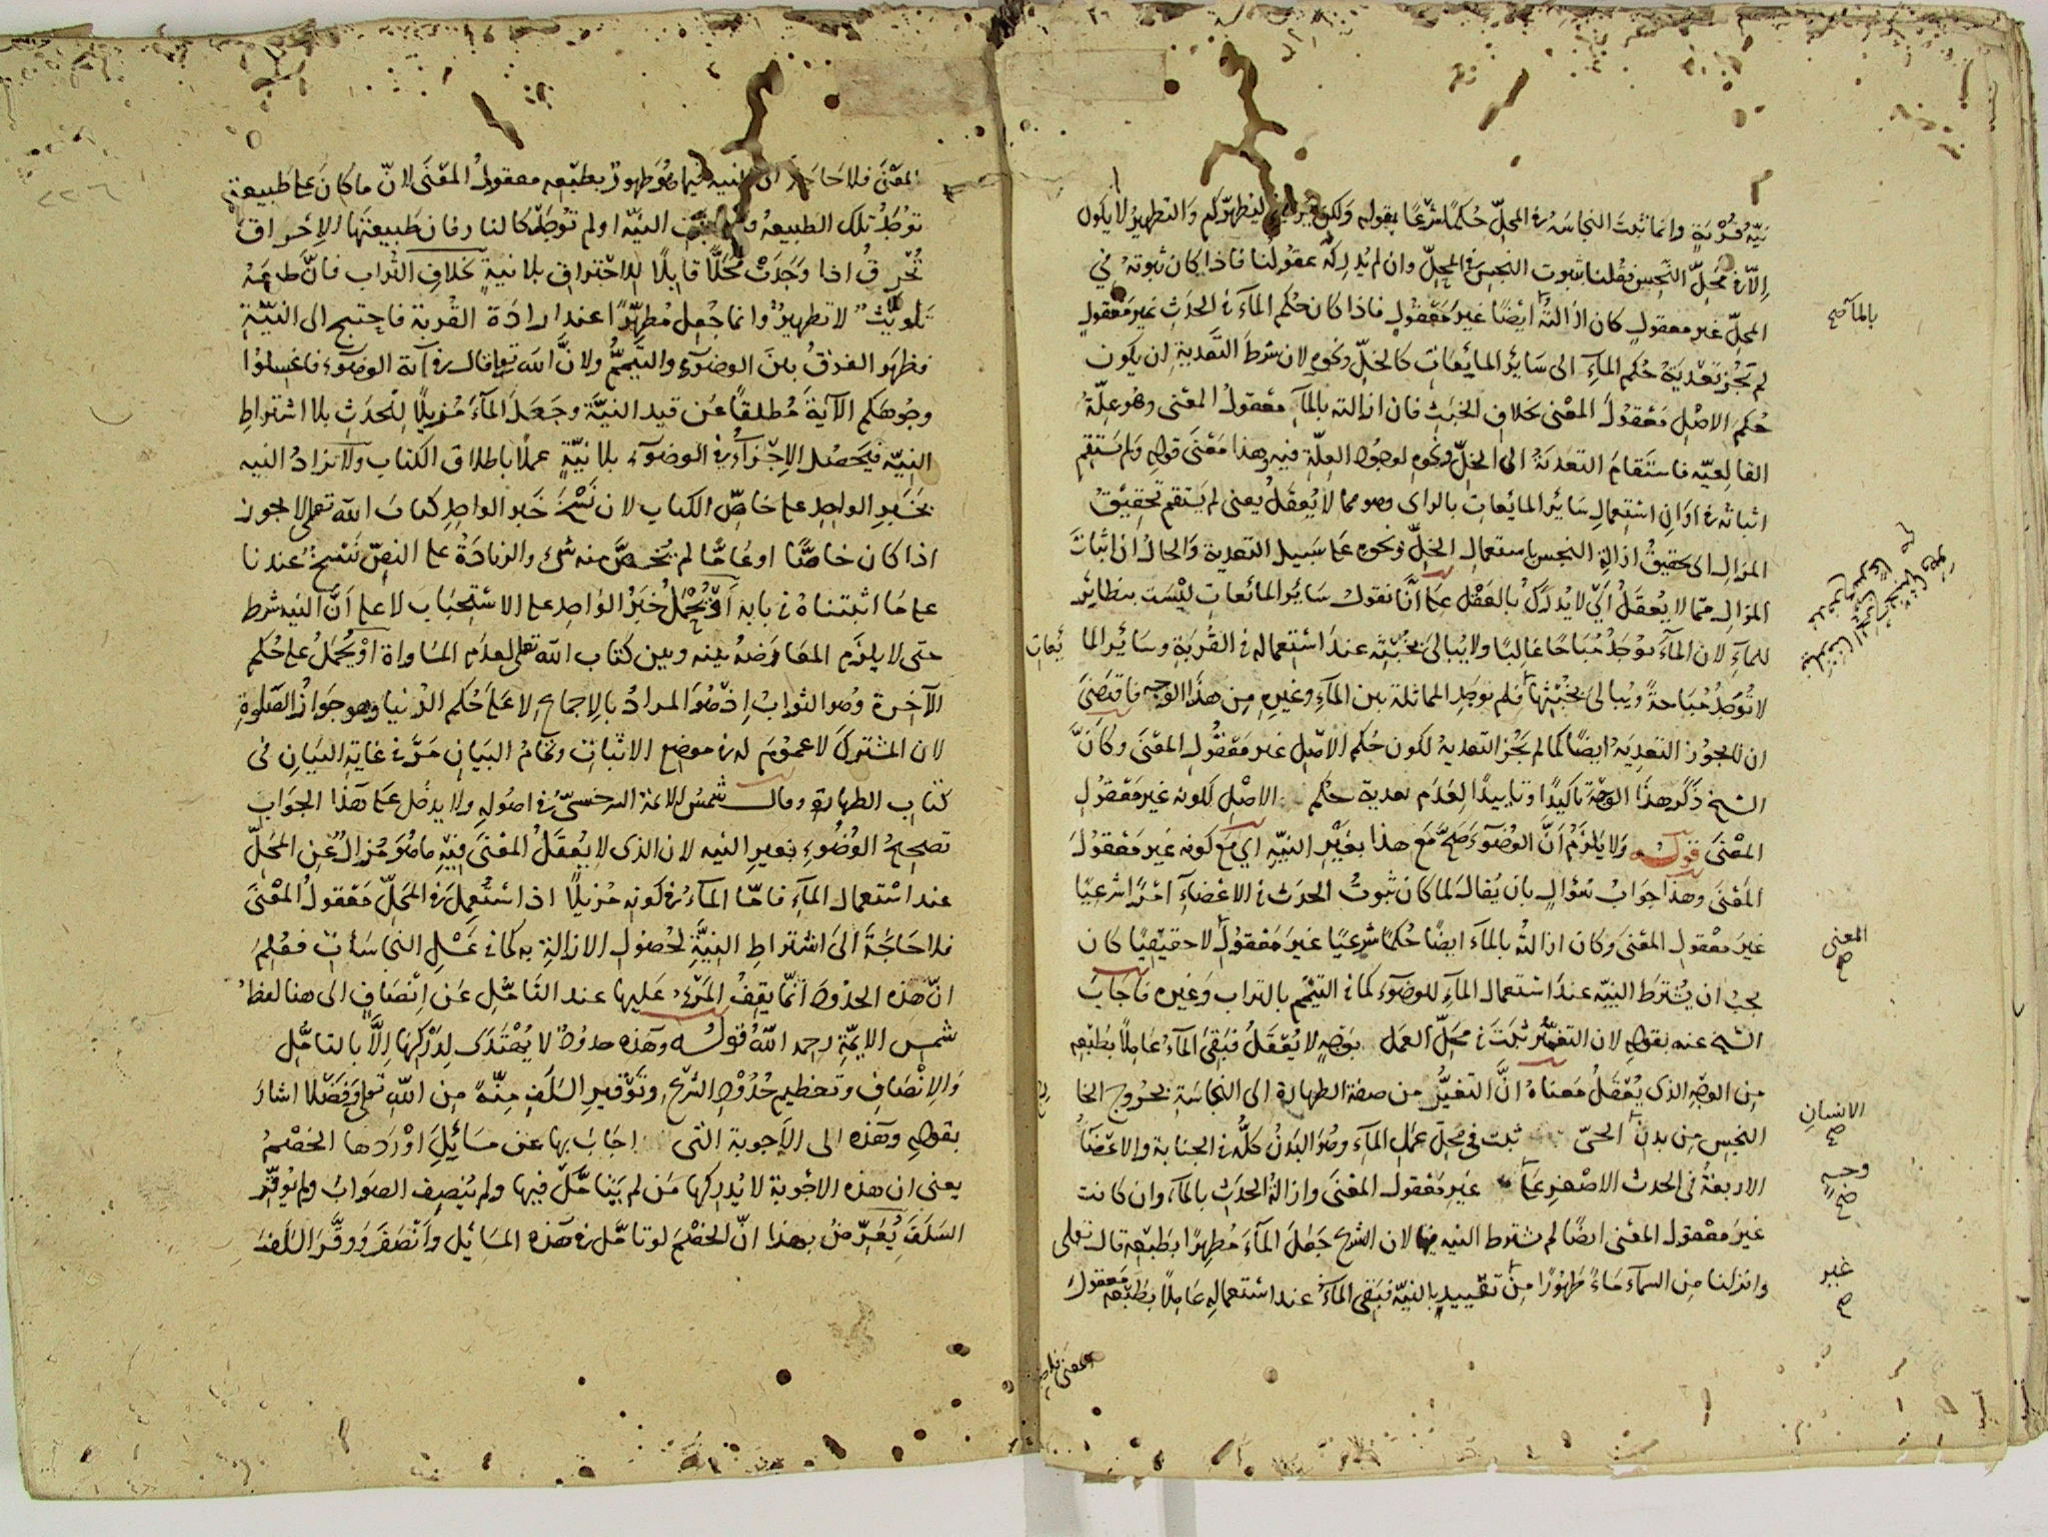 نيّة قُرْبَةٍ وانما ثبتت النجاسة فى المحلّ حُكمًا شرعًا بقوله ولكن يريد ليطهّركم والتطهيرُ لا يكون
الّا فى مَحَلّ النجس فقُلنا بثبوت النجس فى المحلّ وان لم يُدركه عقولُنا فاذا كان ثبوته فى
المحلّ غير معقول كان ازالته ايضًا غير مَعقُولٍ فاذا كان حُكم الماء فى الحدث غير معقول
لم تجُز تعدية حُكم الماءِ الى سَائر المايعات كالخلّ ونحوه لان شرط التَعدية ان يكون
حُكم الاصْلِ مَعْقولَ المعْنى بخلاف الخبث فان ازالته بالمآء معْقولُ المعْنى وهو علّة
القالعيّه فاستقام التعدية الى الخلّ ونحوه لوجود العلّة فيه وهذا مَعْنَى قوله ولم يستقم
اثباته فى اوان استعمال سَائر المايعات بالراى وهو مما لا يُعقَلُ يعنى لم يستقم تحقيقُ
المزال اى تحقيقُ ازالةِ النجس باستعمال الخلّ ونحوه على سَبيل التعدية والحال ان اثبات
المزال ممّا لا يُعقلُ اَى لا يُدرَكُ بالعَقْل على انَّا نقول سَائر المائعات ليْسَت بنظائر
للمآءِ لان المآء يوجَدُ مُبَاحًا غالبًا ولا يُبالى بخُبْثِه عندَ اسْتعماله فى القُربَةِ وسَائر الما
يُعات
لا تُوجَدُ مُبَاحةً ويُبالى بخُبْثِها فلم توجَدِ المماثلة بين المآءِ وغيرِه مِن هذا الوجه فاقتضى
ان لا يجوز التعدِيَة ايضًا كما لم يَجُز التعديةُ لكون حُكم الاصْلِ غير مَعْقُولِ المعْنَى وكانَّ
الشيخ ذَكَر هذا الوجْهَ تاكيدًا وتاييدًا لعَدَم تعدية حكم الاصْلِ لكونه غير مَعْقُول
المعْنَى قولُه ولا يَلزَمُ اَنَّ الوضوءَ صَحَّ مَع هذا بغَيْر النيّةِ اى مَع كونه غير مَعْقُول
المَعْنَى وهذا جَوَابُ سُؤالٍ بان يُقال لما كان ثبوتُ الحدَث فى الاعْضآءِ امْرًا شرعيًّا
غيرَ معْقول المعْنَى وكان ازالتُه بالمآء ايضًا حُكمًا شرعيًا غيرَ مَعْقولٍ لا حقيقيًا كان
يجبُ ان يُشتَرطَ النيّة عند استعمال المآءِ للوضوء كما فى التيمّم بالتراب وغيره فاَجَابَ
الشيخ عنه بقوله لان التغيُّر ثبَتَ فى مَحلِّ العمل بوَجْهٍ لا يُعْقَلُ فبَقِىَ المآءُ عَامِلًا بطَبْعِه
مِن الوجهِ الذى يُعْقَلُ مَعناهُ انَّ التغيُّر من صفة الطهارة الى النجَاسَةِ بخُروج الخا
رج
النجِس مِن بدنِ الحىّ ثبت فى مَحَلّ عَمَل المآءِ وهُوَ البَدَنُ كلُّه فى الجنابة والاعْضآءُ
الاربعةُ فى الحدث الاصْغر على غير مَعْقول المعْنَى وازالةُ الحدَث بالمآء وان كانت
غير مَعْقول المعْنى ايضًا لم يشترط النيه فيها لان الشرع جَعَلَ المآءَ مُطهِرًا بطَبْعِه قال تعالى
وانزلنا مِن السمآء ماءً طَهُورًا مِن تقييدٍ بالنيّة فبَقِىَ المآءُ عند استعماله عَامِلًا بطَبْعِه معقول
بالمآء صح
المعنى
صح
الانسان
صح
وجهٍ
صح
غير
صح
المعنى فلا حَاجة الى النيه فيما هُوَ طهورٌ بطبْعِه معقولُ المعْنَى لانّ ما كان على طَبيعة
توجَدُ تلك الطبيعةُ النيّة او لم توجَدْ كالنار فان طَبيعتَها الاِحْراق
تُحْرِقُ اذا وَجَدَتْ مَحَلًّا قابِلًا للاحْتراق بلا نيةٍ بخلاف التُراب فانّ طبعَهُ
تَلوِيْثٌ لا تطهيرٌ وانما جُعِلَ مُطهِّرًا عند ارادَة القُربة فاحتيج الى النيّةِ
فظهر الفرقُ بين الوضوءِ والتيممُّ ولانَّ الله تعالى قال فى آية الوضوء فاغسلوا
وجُوهَكم الآيةَ مُطلقًا عَن قيد النيَّة وجَعَلَ المآءَ مُزيلًا لِلْحدَثِ بلا اشتراطِ
النيّه فيَحصُل الاِجْزآءُ فى الوضوء بلا نيّةٍ عملًا باطلاق الكتاب ولا تزادُ النيه
بخَبَرِ الواحِدِ على خاصِّ الكتاب لان نَسْخَ خَبر الواحِدِ كتابَ الله تعالى لا يجوز
اذا كان خاصًّا او عَامًّا لم يُخَصَّ منه شىءٌ والزيادَةُ على النصّ نَسْخٌ عندنا
على مَا اثبتناهُ فى بابه اَوْ يُحْمَلُ خَبَرُ الوَاحِدِ على الاسْتِحبَاب لا على اَنَّ النيه شرط
حتى لا يلزَم المعَارَضةُ بينه وبين كتاب الله تعالى لعدَمِ المسُاواة اَوْ يُحْمَلُ على حُكم
الآخِرة وهو الثوابُ اِذ هُوَ المرادُ بالاِجماع لا على حُكم الدُنيا وهو جَوازُ الصَلوةِ
لان المشترك لا عموم له فى موضع الاثبات وتمامُ البَيانِ مَرَّ فى غايةِ البَيانِ فى
كتاب الطهارة وقال شمسُ الائمة السرخسىّ فى اصُوله ولا يدخُل على هذا الجوَاب
تصحيحُ الوُضُوءِ بغيرِ النيه لان الذى لا يُعقَلُ المعْنَى فيْهِ ما هُوَ مُزالٌ عَن المحلّ
عند اسْتعمال المآءِ فامّا المآءُ فى كونه مُزيلًا اذ اسْتُعمِلَ فى المحَلّ مَعْقولُ المعْنَى
فلا حَاجَةَ اِلَى اشتراطِ النيَّةِ لحُصُولِ الازالةِ به كما فى غَسْلِ النجَاسَات فعُلِمَ
انّ هذه الحدُودَ انّما يَقِفُ المَرْءُ عليها عند التَامُّلِ عَن اِنْصَافٍ الى هنا لفظُ
شمس الائمّةِ رحمه اللهُ قولُه وهذه حدودٌ لا يُهْتَدَى لِدَرْكِهَا اِلَّا بالتامُّلِ
وَالاِنْصَافِ وتعظيمِ حُدُودِ الشرع وتَوْقيرِ السَلَفِ مِنَّةً مِن اللهِ تعالى وَفَضْلًا اشارَ
بقوله وهذه الى الاَجوبة التى اجَابَ بها عن مسَائِلَ اَوْرَدَها الخصْمُ
يعنى ان هذه الاجْوبة لا يُدركُها مَن لم يتامَّلْ فيها ولم يُنصِف الصوابَ ولم يُوقِّر
السَلَفَ يُعَرِّضُ بهذا انّ الخصْمَ لو تامَّل فى هذه المسَائِل واَنْصَفَ وَوقَّرَ السَلَفَ